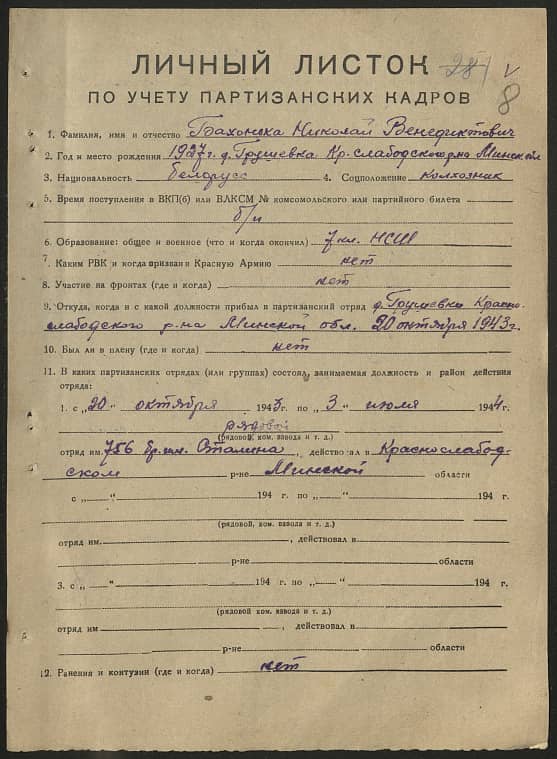 281 v
8
ЛИЧНЫЙ ЛИСТОК
ПО УЧЕТУ ПАРТИЗАНСКИХ КАДРОВ
1. Фамилия, имя и отчество Бахонька Николай Венедиктович
2. Год и место рождения 1927г. д. Грушевка Кр-слабодского р-на Минской обл.
3. Национальность белорусс 4. Соцположение колхозник
5. Время поступления в ВКП(б) или ВЛКСМ № комсомольского или партийного билета
б/п
6. Образование: общее и военное (что и когда окончил) 7 кл. НСШ
7. Каким РВК и когда призван в Красную Армию нет
8. Участие на фронтах (где и когда) нет
9. Откуда, когда и с какой должности прибыл в партизанский отряд д. Грушевка Красно-
слабодского р-на Минской обл. 20 октября 1943г.
10. Был ли в плену (где и когда) нет
11. В каких партизанских отрядах (или группах) состоял, занимаемая должность и район действия
отряда:
1. с „20" октября 1943г. по „3" июля 1944г.
рядовой
(рядовой, ком. взвода и т. д.)
отряд им. 756 бр. им. Сталина, действовал в Краснослабод-
ском р-не Минской области
с „ " 194 г. по „ " 194 г.
(рядовой, ком. взвода и т. д.)
отряд им. , действовал в
р-не области
3. с „ " 194 г. по „ " 194 г.
(рядовой ком. взвода и т. д.)
отряд им , действовал в
р-не области
12. Ранения и контузии (где и когда) нет